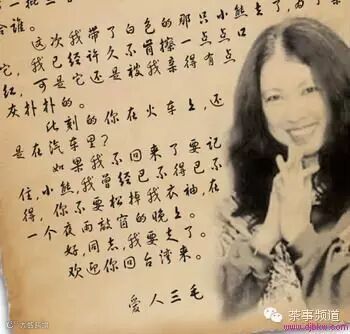 一批三。
会谁。
这次我带了白色的那只小熊去了,为了亲
它,我已经许久不肯擦一点点口
红,可是它还是被我亲得有点
灰扑扑的。
此刻的你在火车上,还
是在汽车里?
如果我不回来了要记
住,小熊,我曾经已不得已不
得,你不要松掉我衣袖,在
一个夜雨敲窗的晚上。
好,同去,我要走了。
欢迎你回台湾来。
爱人三毛
茶事频道
www.djbkw.com